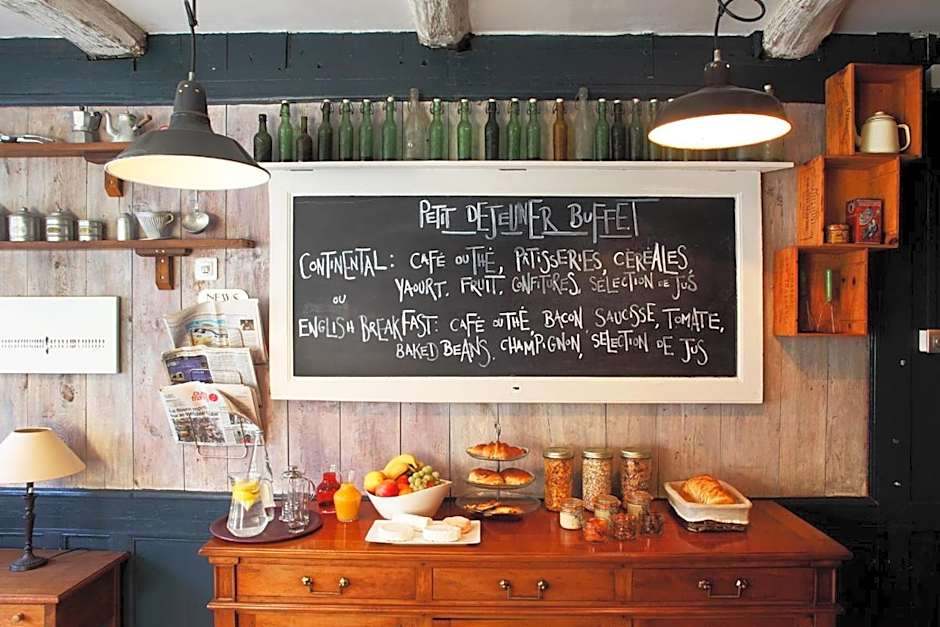 PETIT DEJEUNER BUFFET
CONTINENTAL: CAFÉ OU THÉ, PÂTISSERIES, CÉRÉALES,
OU YAOURT, FRUIT, CONFITURES, SÉLECTION DE JUS
ENGLISH BREAKFAST: CAFÉ OU THÉ, BACON, SAUCISSE, TOMATE,
BAKED BEANS, CHAMPIGNON, SELECTION DE JUS
NEWS